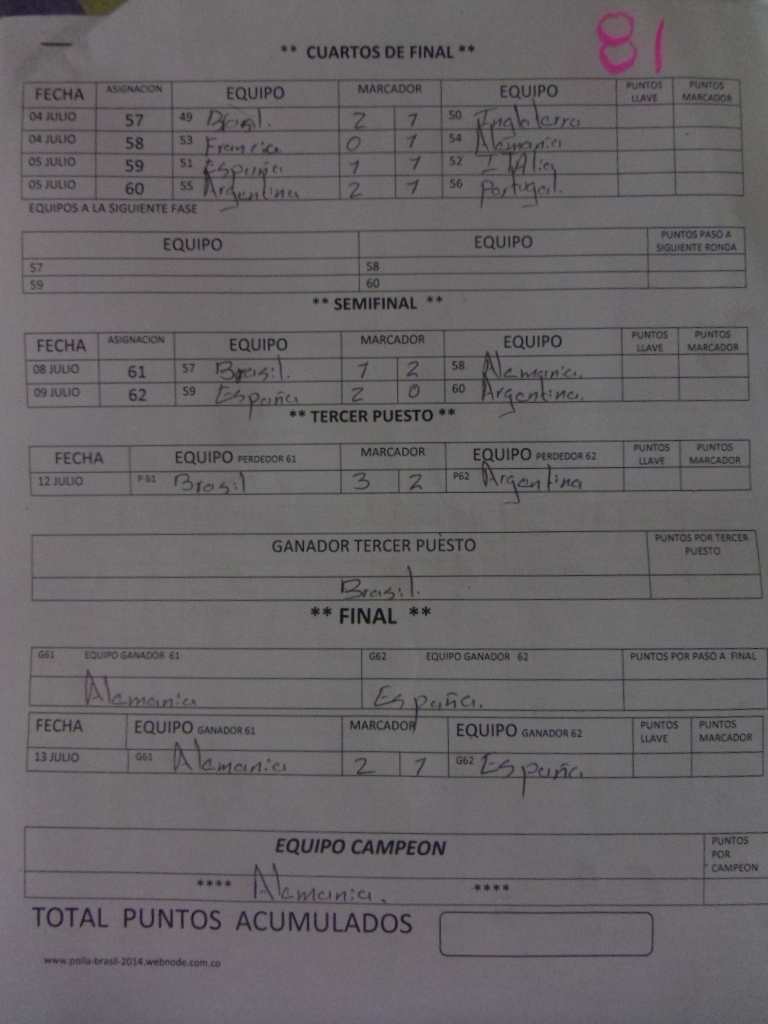 81
** CUARTOS DE FINAL **
FECHA ASIGNACION EQUIPO MARCADOR EQUIPO PUNTOS LLAVE PUNTOS MARCADOR
04 JULIO 57 49 Brasil. 2 1 50 Inglaterra
04 JULIO 58 53 Francia 0 1 54 Alemania
05 JULIO 59 51 España 1 1 52 ITAlia
05 JULIO 60 55 Argentina 2 1 56 Portugal.
EQUIPOS A LA SIGUIENTE FASE
EQUIPO EQUIPO PUNTOS PASO A SIGUIENTE RONDA
57 58
59 60
** SEMIFINAL **
FECHA ASIGNACION EQUIPO MARCADOR EQUIPO PUNTOS LLAVE PUNTOS MARCADOR
08 JULIO 61 57 Brasil. 1 2 58 Alemania.
09 JULIO 62 59 España 2 0 60 Argentina.
** TERCER PUESTO **
FECHA EQUIPO PERDEDOR 61 MARCADOR EQUIPO PERDEDOR 62 PUNTOS LLAVE PUNTOS MARCADOR
12 JULIO P 61 Brasil 3 2 P62 Argentina
GANADOR TERCER PUESTO PUNTOS POR TERCER PUESTO
Brasil.
** FINAL **
G61 EQUIPO GANADOR 61 G62 EQUIPO GANADOR 62 PUNTOS POR PASO A FINAL
Alemania España.
FECHA EQUIPO GANADOR 61 MARCADOR EQUIPO GANADOR 62 PUNTOS LLAVE PUNTOS MARCADOR
13 JULIO G61 Alemania 2 1 G62 España
EQUIPO CAMPEON PUNTOS POR CAMPEON
**** Alemania. ****
TOTAL PUNTOS ACUMULADOS
www.polla-brasil-2014.webnode.com.co